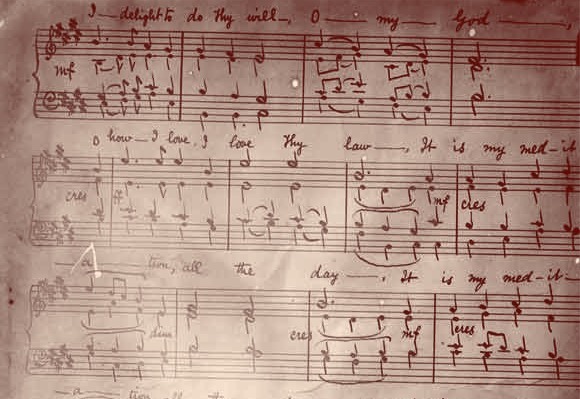 I delight to do Thy will, O my God,
mf
O how I love, I love Thy law, It is my med-it
cres ff mf cres
a tion, all the day, It is my med-it-
dim cres mf cres
a tion